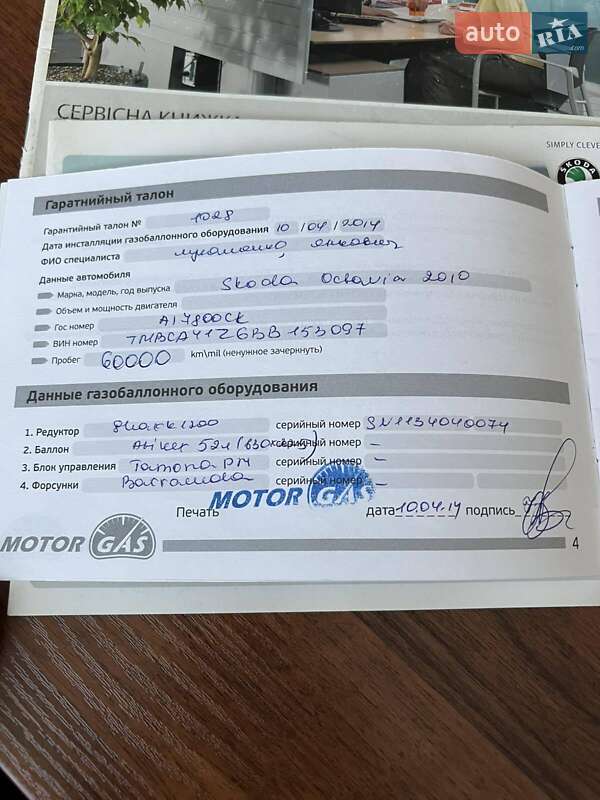 auto RIA.com
СЕРВІСНА КНИЖКА
SIMPLY CLEVE
SKODA
Гаратнийный талон
Гарантийный талон № 1028
Дата инсталляции газобаллонного оборудования 10 / 04 / 2014
ФИО специалиста
Данные автомобиля
Марка, модель, год выпуска Skoda Octavia 2010
Объем и мощность двигателя
Гос номер AI7800CK
ВИН номер TMBCA41Z6BB153097
Пробег 60000 km\mil (ненужное зачеркнуть)
Данные газобаллонного оборудования
1. Редуктор Shark 1200 серийный номер SN1134040074
2. Баллон Atiker 52л серийный номер –
3. Блок управления Tamona серийный номер –
4. Форсунки Barracuda серийный номер –
Печать MOTOR GAS дата 10.04.14 подпись
MOTOR GAS
4